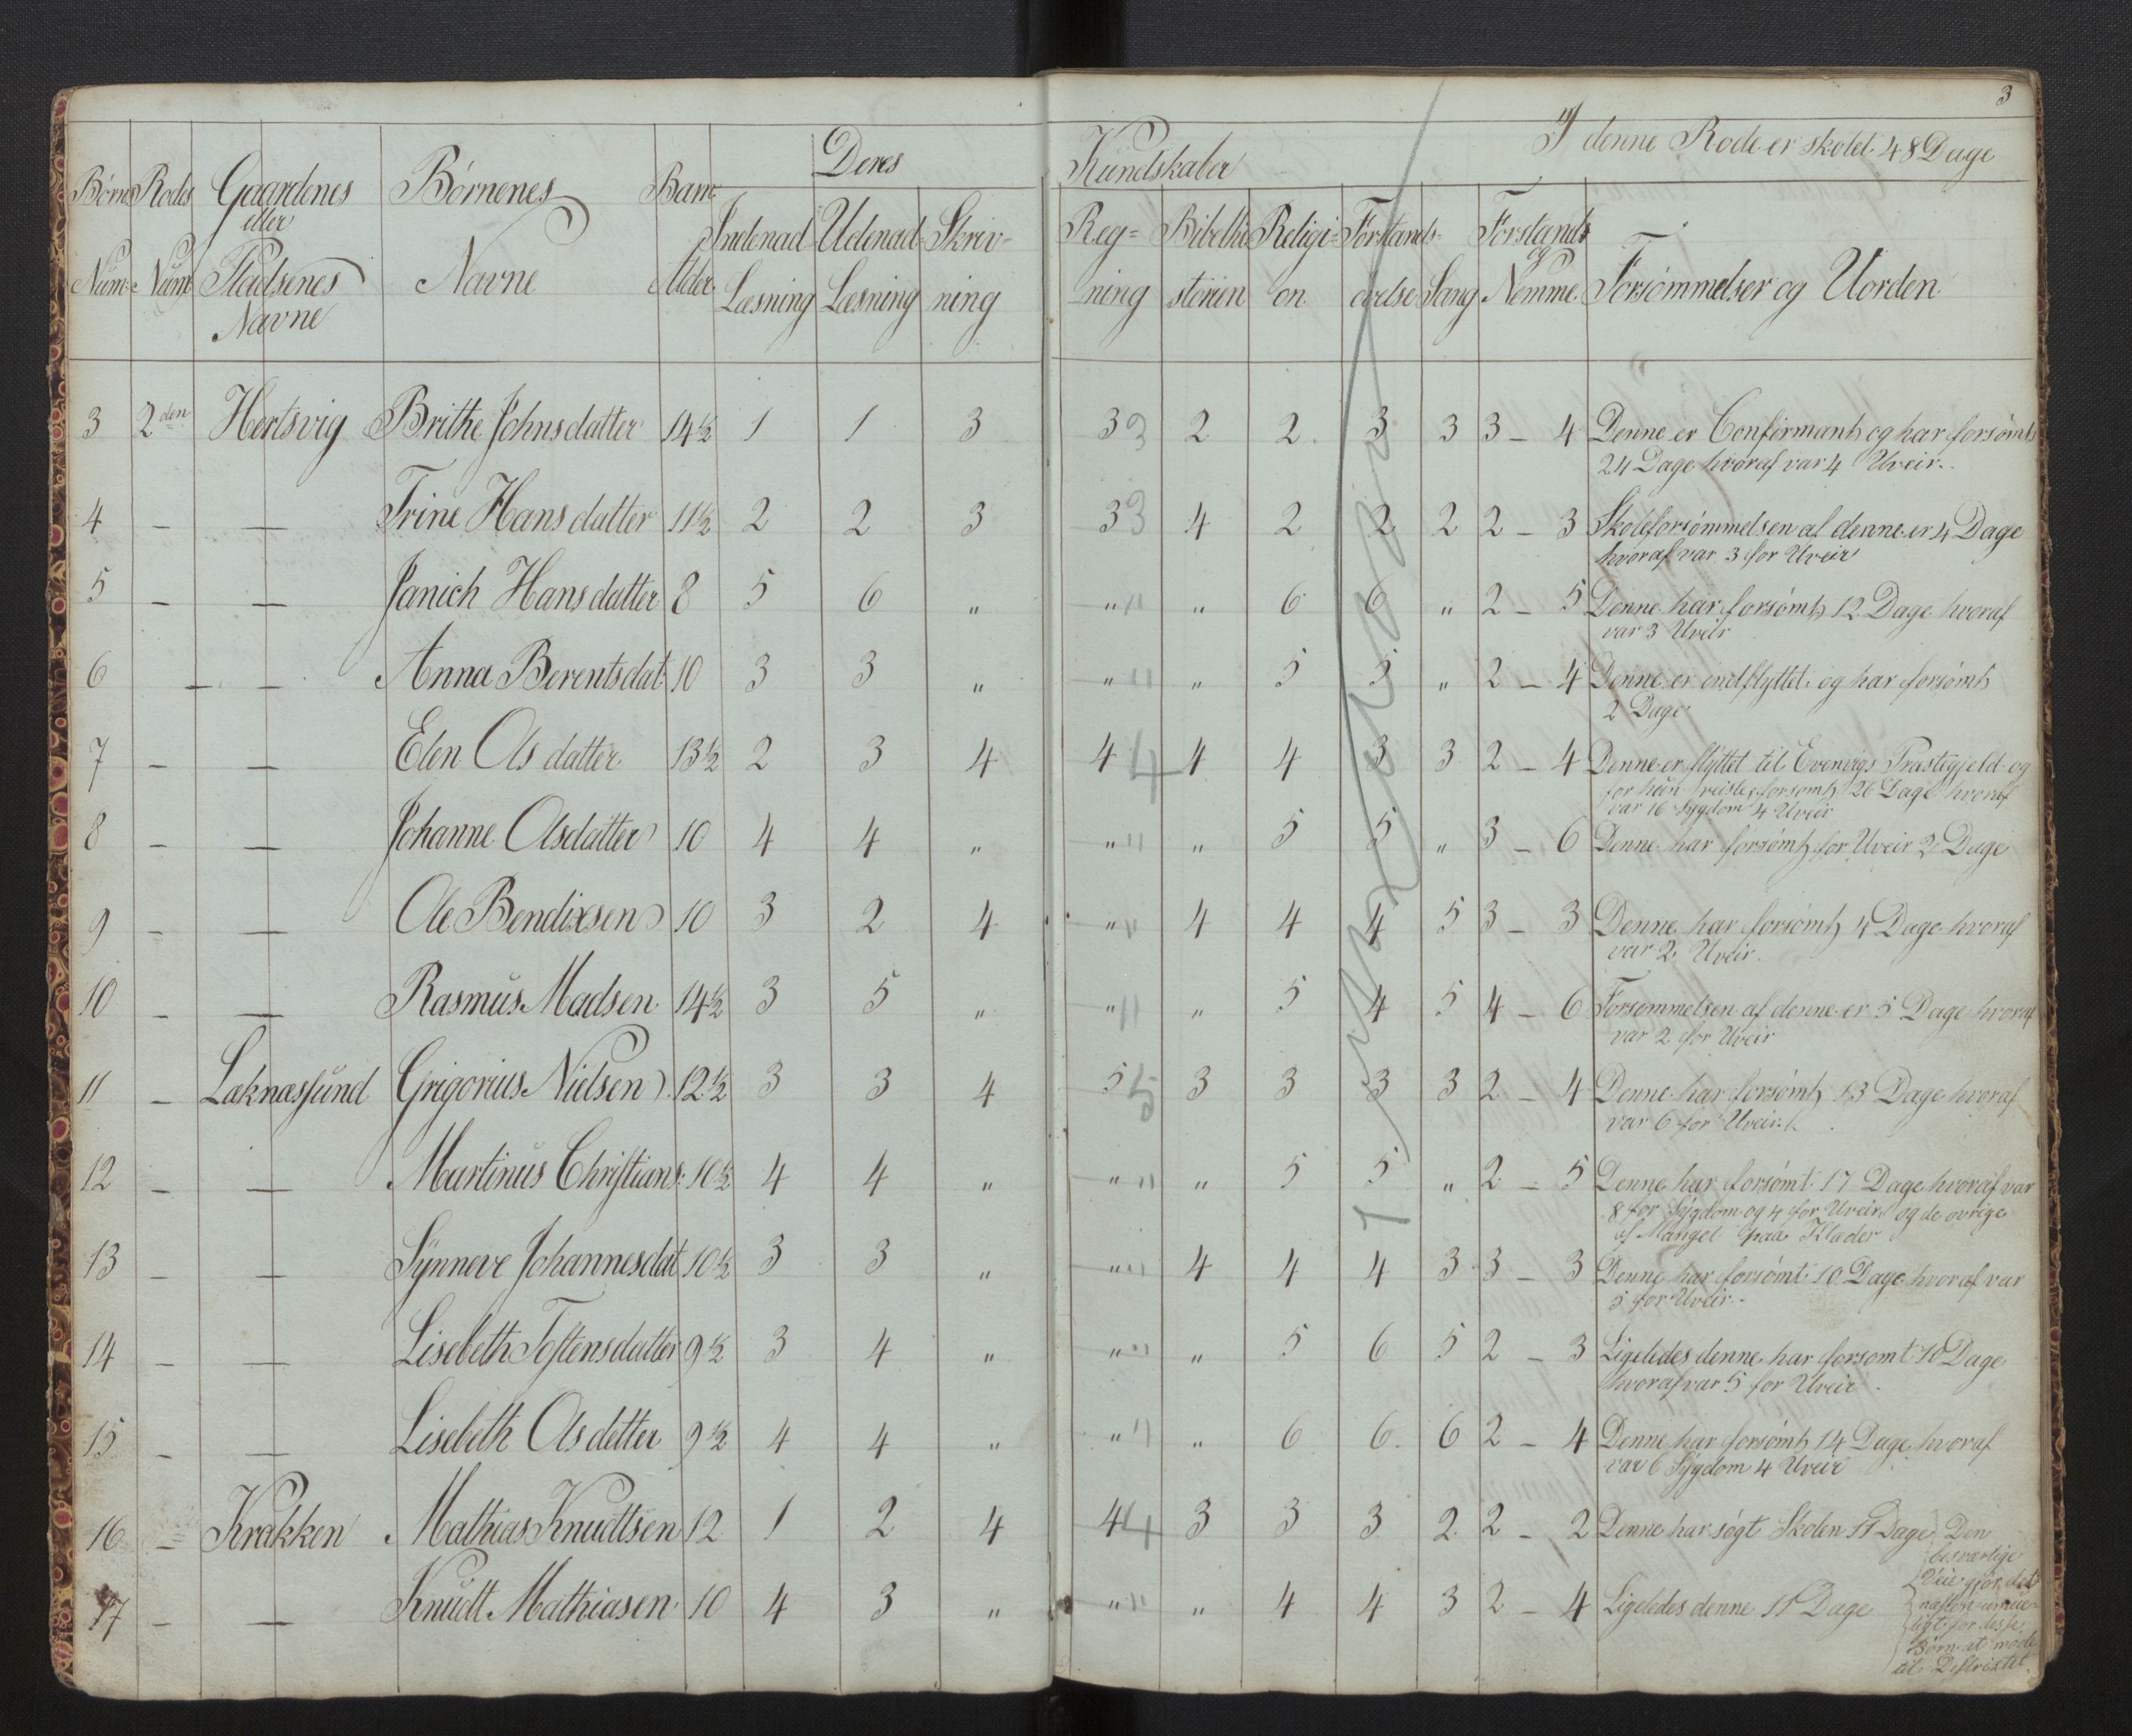 3
I denne Rode er skolet 48 Dage
Deres Kundskaber
Børns Num. Rodes Num. Gaardenes eller Pladsenes Navne Børnenes Navne Barn. Alder. Indenad Læsning Udenad Læsning Skriv- ning Reg= ning Bibelhi storien Religi= on Forstands- øvelse Sang Forstands og Nemme. Forsømmelser og Uorden.
3 2den Hertsvig Brithe Johnsdatter 14½ 1 1 3 3 3 2 2 3 3 3 – 4 Denne er Confirmant, og har forsømt
24 Dage hvoraf var 4 Uveir.
4 – — Trine Hansdatter 11½ 2 2 3 3 3 4 2 2 2 2 – 3 Skoleforsømmelsen af denne er 4 Dage
hvoraf var 3 for Uveir
5 – — Janich Hansdatter 8 5 6 " " " " 6 6 " 2 – 5 Denne har forsømt 12 Dage hvoraf
var 3 Uveir
6 – — Anna Berentsdat: 10 3 3 " " " " 5 5 " 2 – 4 Denne er indflyttet og har forsømt
2 Dage
7 – — Elen Olsdatter 13½ 2 3 4 4 4 4 4 3 3 2 – 4 Denne er flyttet til Evenvigs Præstegjeld og
før hun reiste, forsømt 26 Dage hvoraf
var 16 Sygdom 4 Uveir
8 – — Johanne Olsdatter 10 4 4 " " " " 5 5 " 3 – 6 Denne har forsømt for Uveir 2 Dage
9 – — Ole Bendixsen 10 3 2 4 " " 4 4 4 5 3 – 3 Denne har forsømt 4 Dage hvoraf
var 2 Uveir.
10 – — Rasmus Madsen 14½ 3 5 " " " " 5 4 5 4 – 6 Forsømmelsen af denne er 5 Dage hvoraf
var 2 for Uveir
11 – Laknæssund Grigorius Nielsen 12½ 3 3 4 5 5 3 3 3 3 2 – 4 Denne har forsømt 13 Dage hvoraf
var 6 for Uveir.
12 – — Martinus Christians: 10½ 4 4 " " " " 5 5 " 2 – 5 Denne har forsømt 17 Dage hvoraf var
8 for Sygdom og 4 for Uveir og de øvrige
af Mangel paa Klæder
13 – — Synneve Johannesdat 10½ 3 3 " " " 4 4 4 3 3 – 3 Denne har forsømt 10 Dage hvoraf var
5 for Uveir.
14 – — Lisebeth Testensdatter 9½ 3 4 " " " " 5 6 5 2 – 3 Ligeledes denne har forsømt 10 Dage
hvoraf var 5 for Uveir
15 – — Lisebeth Olsdetter 9½ 4 4 " " " " 6 6 6 2 – 4 Denne har forsømt 14 Dage hvoraf
var 6 Sygdom 4 Uveir
16 – Krakken Mathias Knudtsen 12 1 2 4 4 4 3 3 3 2 2 – 2 Denne har søgt Skolen 11 Dage
17 – — Knudt Mathiasen 10 4 3 " " " " 4 4 3 2 – 4 Ligeledes denne 11 Dage
Den
besværlige
Veie gjør det
næsten umue-
ligt for desse
Børn at møde
til Distrixtet